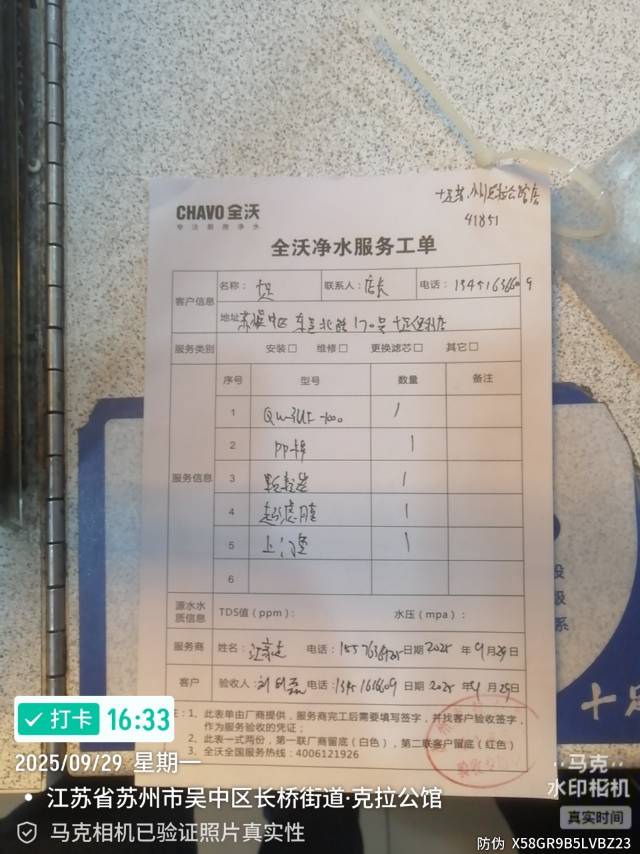 41851
CHAVO 全沃
专注厨房净水
全沃净水服务工单
客户信息 名称： 联系人：店长 电话：
地址
服务类别 安装□ 维修□ 更换滤芯□ 其它□
服务信息 序号 型号 数量 备注
1 1
2 PP棉 1
3 颗粒炭 1
4 超滤膜 1
5 上门费 1
6
源水水质信息 TDS值（ppm）： 水压（mpa）：
服务商 姓名： 电话： 日期 2025 年 9 月 29 日
客户 验收人： 电话： 日期 2025 年 9 月 29 日
注：1、此表单由厂商提供，服务商完工后需要填写签字，并找客户验收签字，
作为服务验收的凭证；
2、此表一式两份，第一联厂商留底（白色），第二联客户留底（红色）
3、全沃全国服务热线：4006121926
打卡 16:33
2025/09/29 星期一
江苏省苏州市吴中区长桥街道·克拉公馆
马克相机已验证照片真实性
马克
水印相机
真实时间
防伪 X58GR9B5LVBZ23